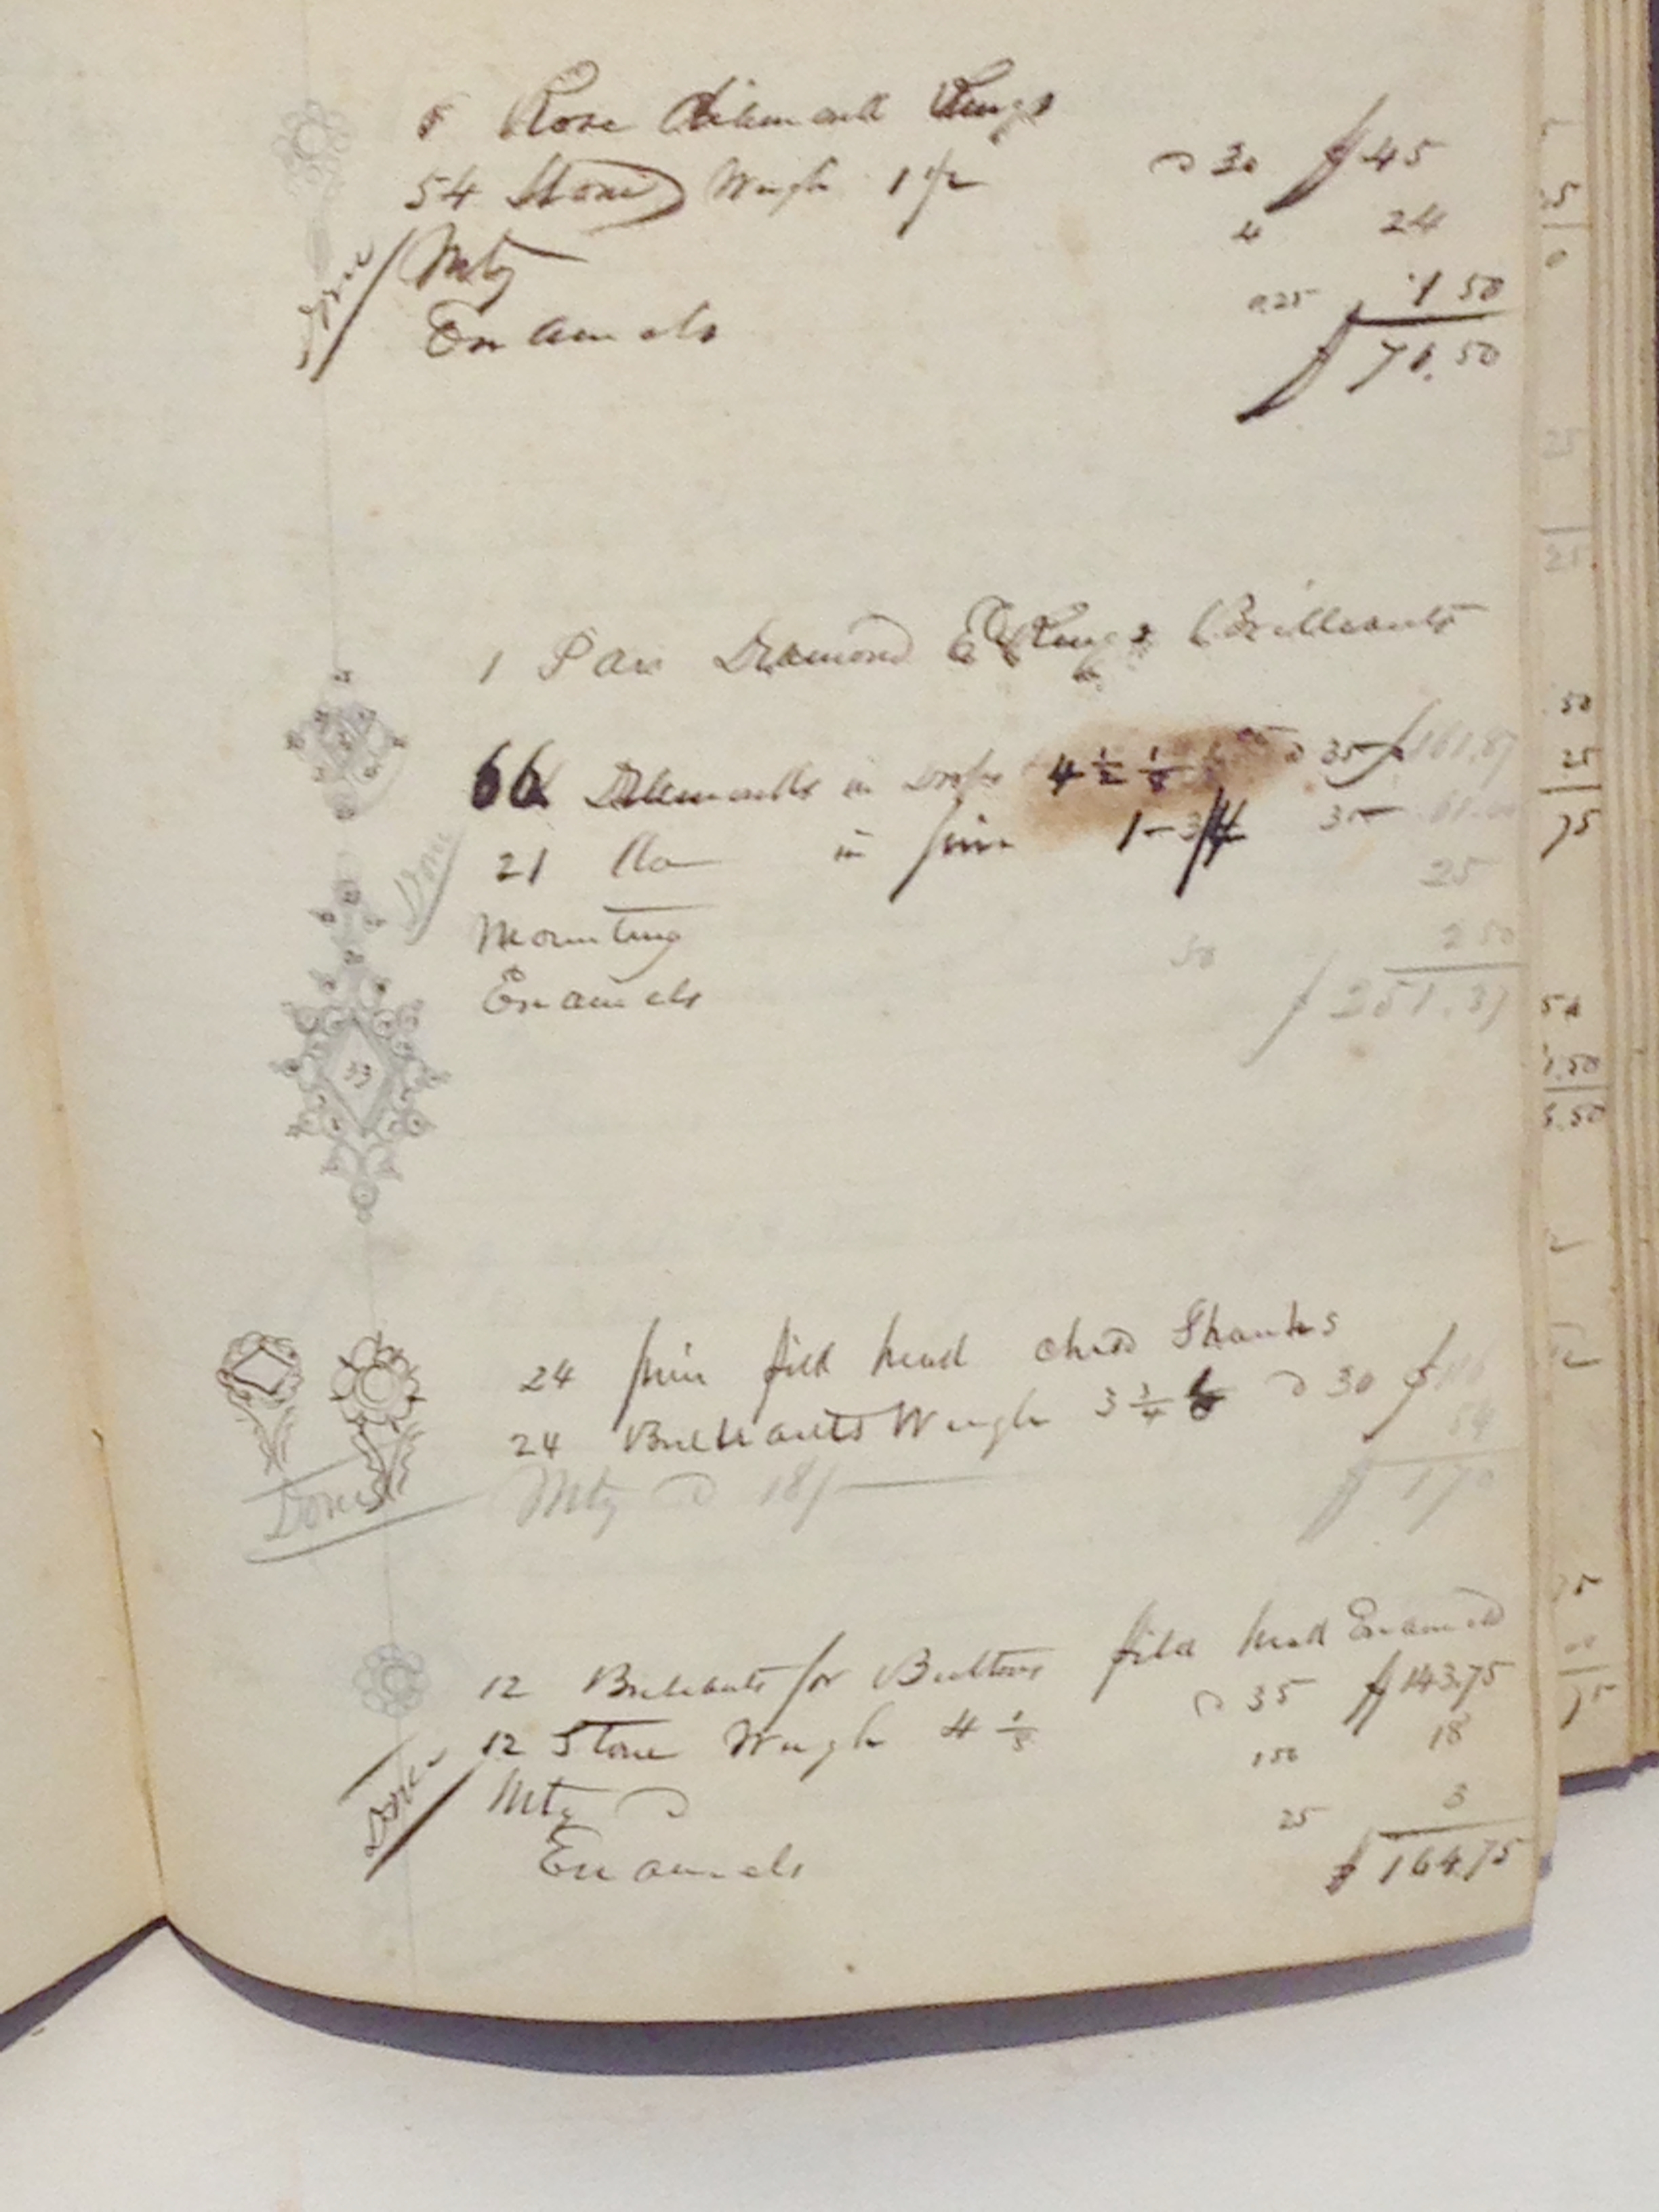 6 Rose Diamond Rings
54 Stone Weigh 1 1/2 @ 30 $ 45
Done Mtg 4 24
Enamels 0.25 1 50
$ 70.50
1 Pair Diamond E Rings Brilliants
66 Diamonds in Drops 4 1/2 1/8 @ 35 $ 161.87
21 Do in 1-3/4 35
Done Mounting 25
Enamels 50 2 50
$ 251.37
33
24 head chased Shanks
24 Brilliants Weigh 3 3/4 @ 30 $ 116
Done Mtg @ 18/ 54
$ 170
12 Brilliants for Buttons head Enameled
12 Stone Weigh 4 1/8 @ 35 $ 143.75
Done Mtg @ 150 18
Enamels 25 3
$ 164.75